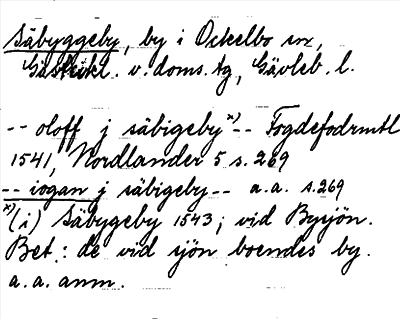 Säbyggeby, by i Ockelbo sn,
Gästrikl. v. doms. tg, Gävleb. l.
-- oloff j säbigeby x) -- Fogdefodrmtl
1541, Nordlander 5 s. 269
-- iogan j säbigeby -- a.a. s. 269
x) (i) Säbygeby 1543; vid Bysjön.
Bet.: de vid sjön boendes by.
a.a. anm.